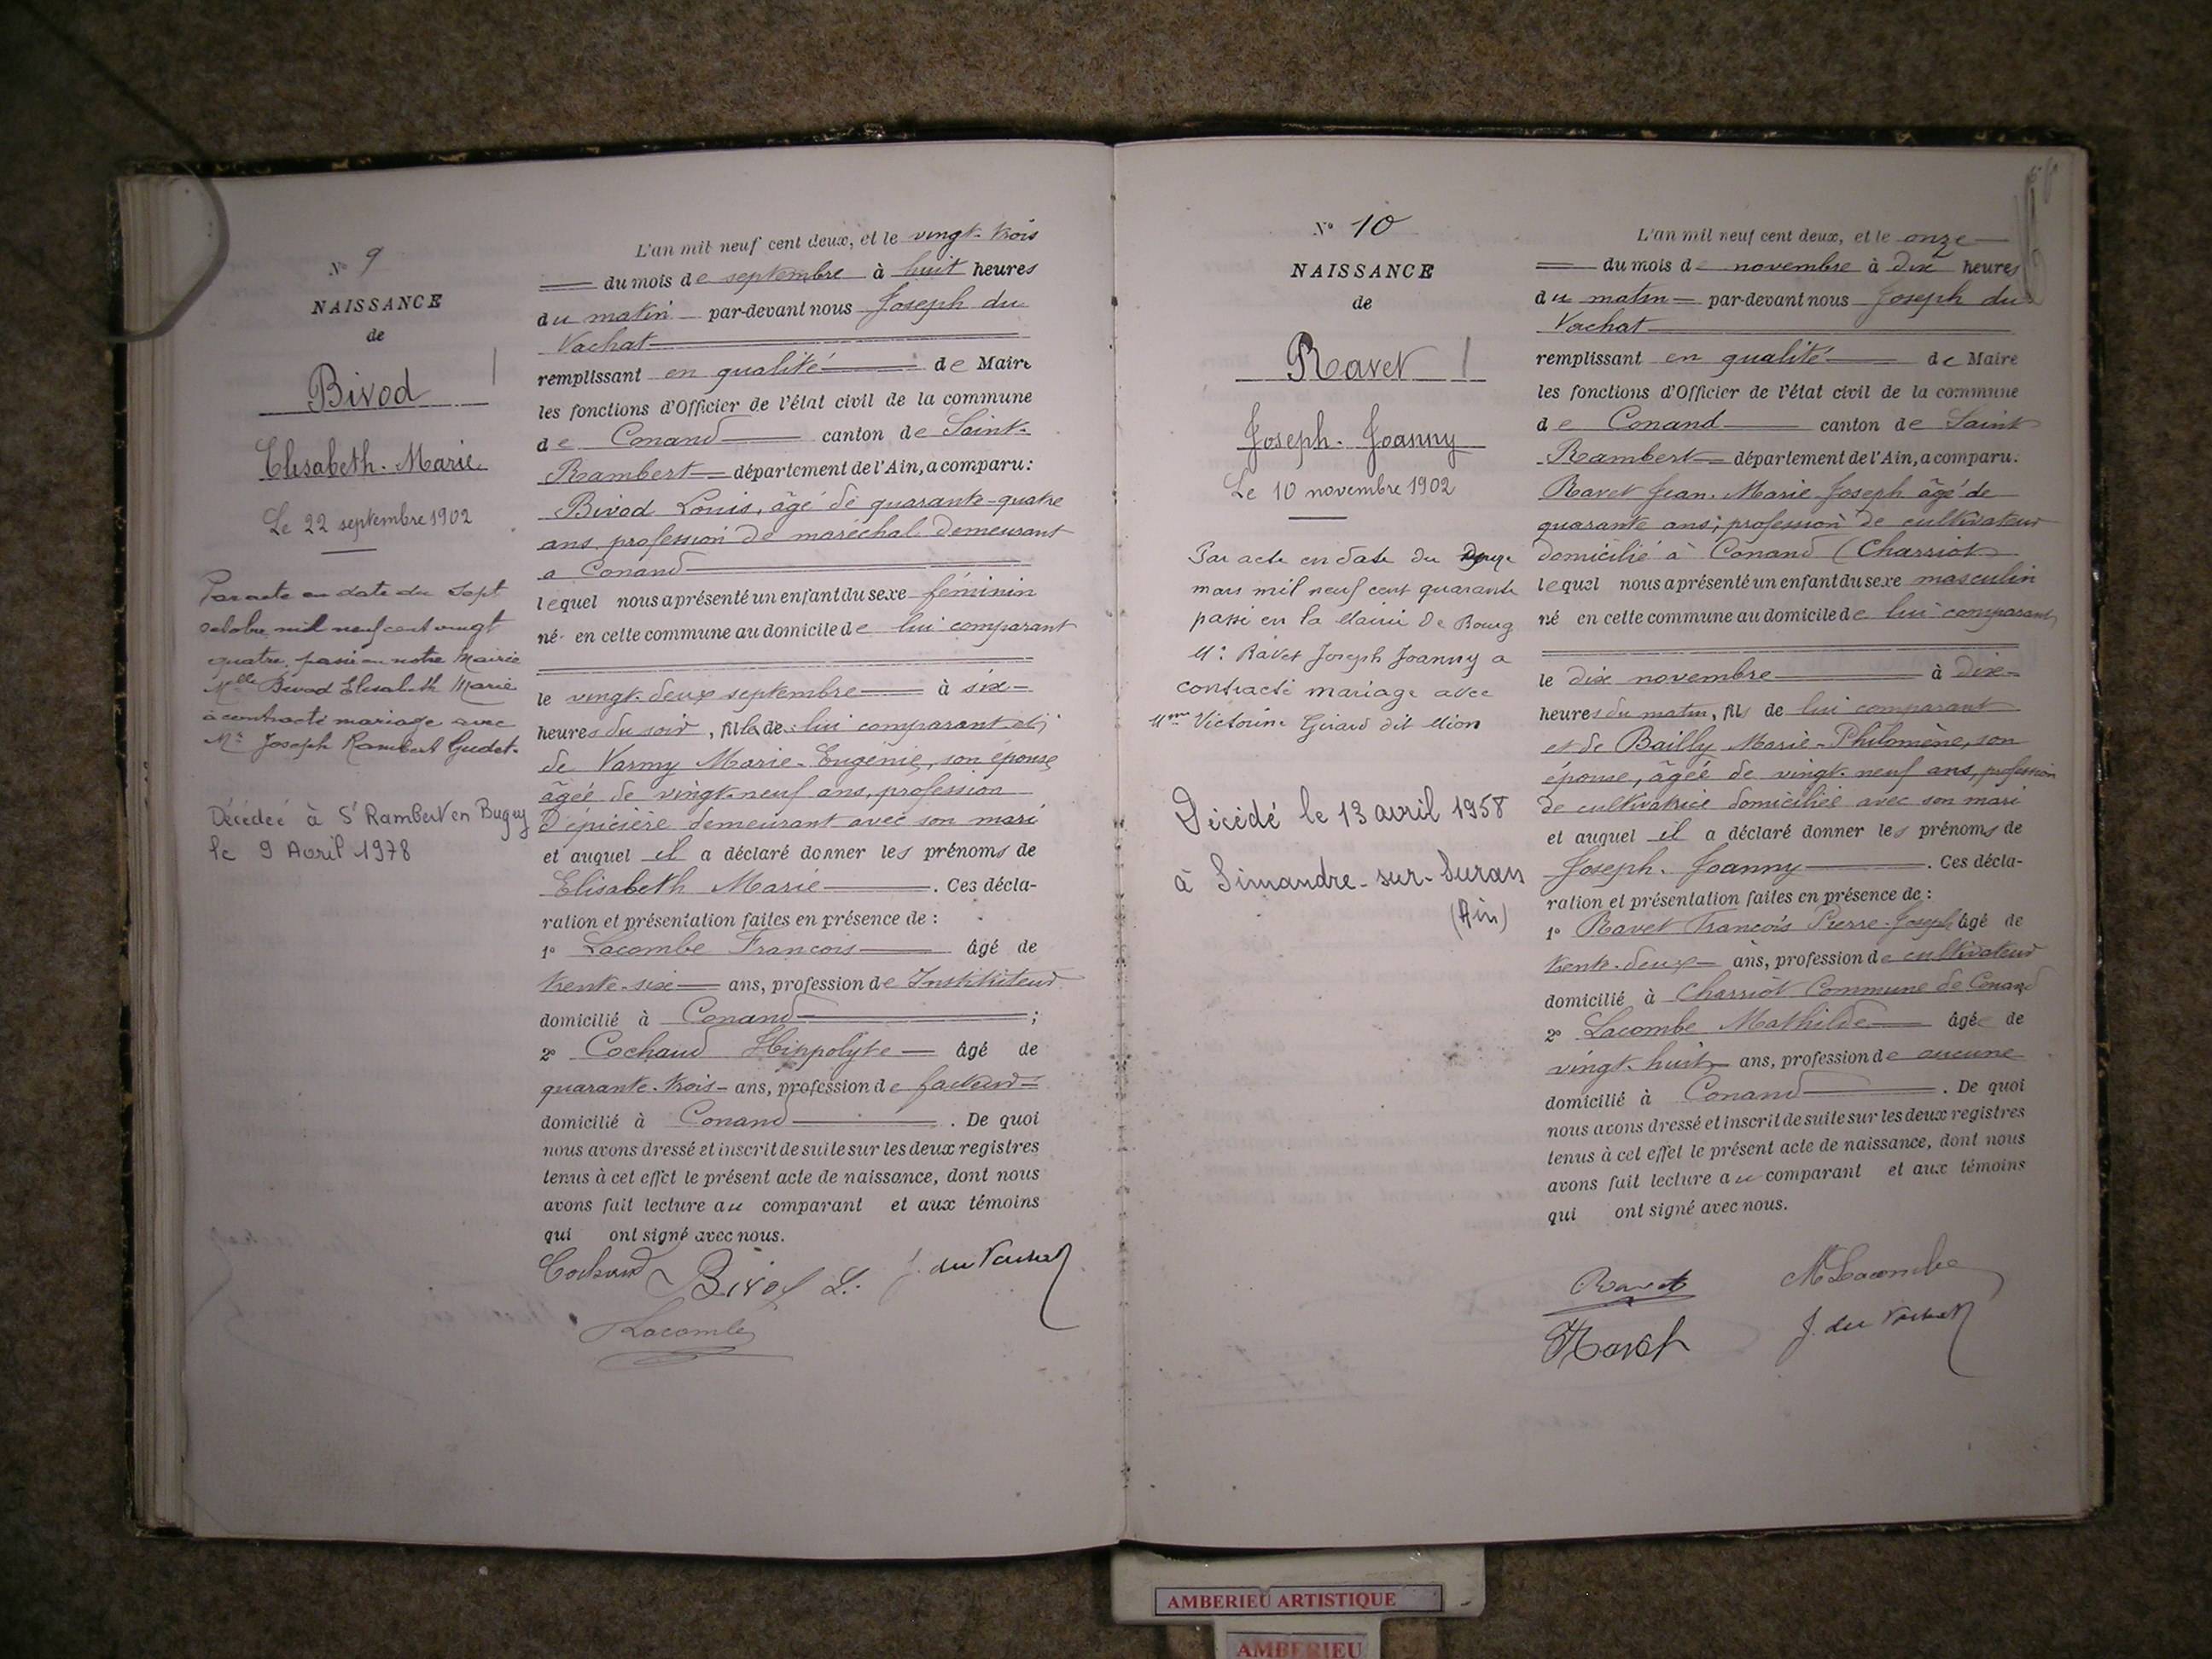 N° 9
NAISSANCE
de
Bivod
Elisabeth. Marie
Le 22 septembre 1902
Par acte en date du sept
octobre mil neuf cent vingt
quatre, passé en notre Mairie
Melle Bivod Elisabeth Marie
a contracté mariage avec
Mr Joseph Rambert Gudet.
Décédée à St Rambert en Bugey
le 9 Avril 1978
L'an mil neuf cent deux, et le vingt-trois
du mois de septembre à huit heures
du matin par-devant nous Joseph du
Vachat
remplissant en qualité de Maire
les fonctions d'Officier de l'état civil de la commune
de Conand canton de Saint-
Rambert département de l'Ain, a comparu:
Bivod Louis, âgé de quarante-quatre
ans, profession de maréchal demeurant
a Conand
lequel nous a présenté un enfant du sexe féminin
né en cette commune au domicile de lui comparant
le vingt-deux septembre à six
heures du soir, fille de lui comparant et
de Varmy Marie-Eugénie, son épouse
âgée de vingt-neuf ans, profession
d'épicière demeurant avec son mari
et auquel il a déclaré donner les prénoms de
Elisabeth Marie. Ces décla-
ration et présentation faites en présence de :
1° Lacombe Francois âgé de
trente-six ans, profession de Instituteur
domicilié à Conand ;
2° Cochaud Hippolyte âgé de
quarante-trois ans, profession de facteur
domicilié à Conand. De quoi
nous avons dressé et inscrit de suite sur les deux registres
tenus à cet effet le présent acte de naissance, dont nous
avons fait lecture au comparant et aux témoins
qui ont signé avec nous.
Cochaud Bivod L. J. du Vachat
Lacombe
N° 10
NAISSANCE
de
Ravet
Joseph. Joanny
Le 10 novembre 1902
Par acte en date du
mars mil neuf cent quarante
passé en la Mairie de Bourg
Mr Ravet Joseph Joanny a
contracté mariage avec
Mme Victorine Girard dit Mion
Décédé le 13 avril 1958
à Simandre-sur-Suran
(Ain)
L'an mil neuf cent deux, et le onze
du mois de novembre à dix heures
du matin par-devant nous Joseph du
Vachat
remplissant en qualité de Maire
les fonctions d'Officier de l'état civil de la commune
de Conand canton de Saint
Rambert département de l'Ain, a comparu.
Ravet Jean. Marie Joseph âgé de
quarante ans; profession de cultivateur
domicilié à Conand (Charriot
lequel nous a présenté un enfant du sexe masculin
né en cette commune au domicile de lui comparant
le dix novembre à dix
heures du matin, fils de lui comparant
et de Bailly Marie-Philomène, son
épouse, âgée de vingt-neuf ans, profession
de cultivatrice domiciliée avec son mari
et auquel il a déclaré donner les prénoms de
Joseph. Joanny. Ces décla-
ration et présentation faites en présence de :
1° Ravet Francois Pierre-Joseph âgé de
trente-deux ans, profession de cultivateur
domicilié à Charriot Commune de Conand
2° Lacombe Mathilde âgée de
vingt-huit ans, profession de aucune
domicilié à Conand. De quoi
nous avons dressé et inscrit de suite sur les deux registres
tenus à cet effet le présent acte de naissance, dont nous
avons fait lecture au comparant et aux témoins
qui ont signé avec nous.
Ravet M Lacombe
Ravet J. du Vachat
AMBERIEU ARTISTIQUE
AMBERIEU